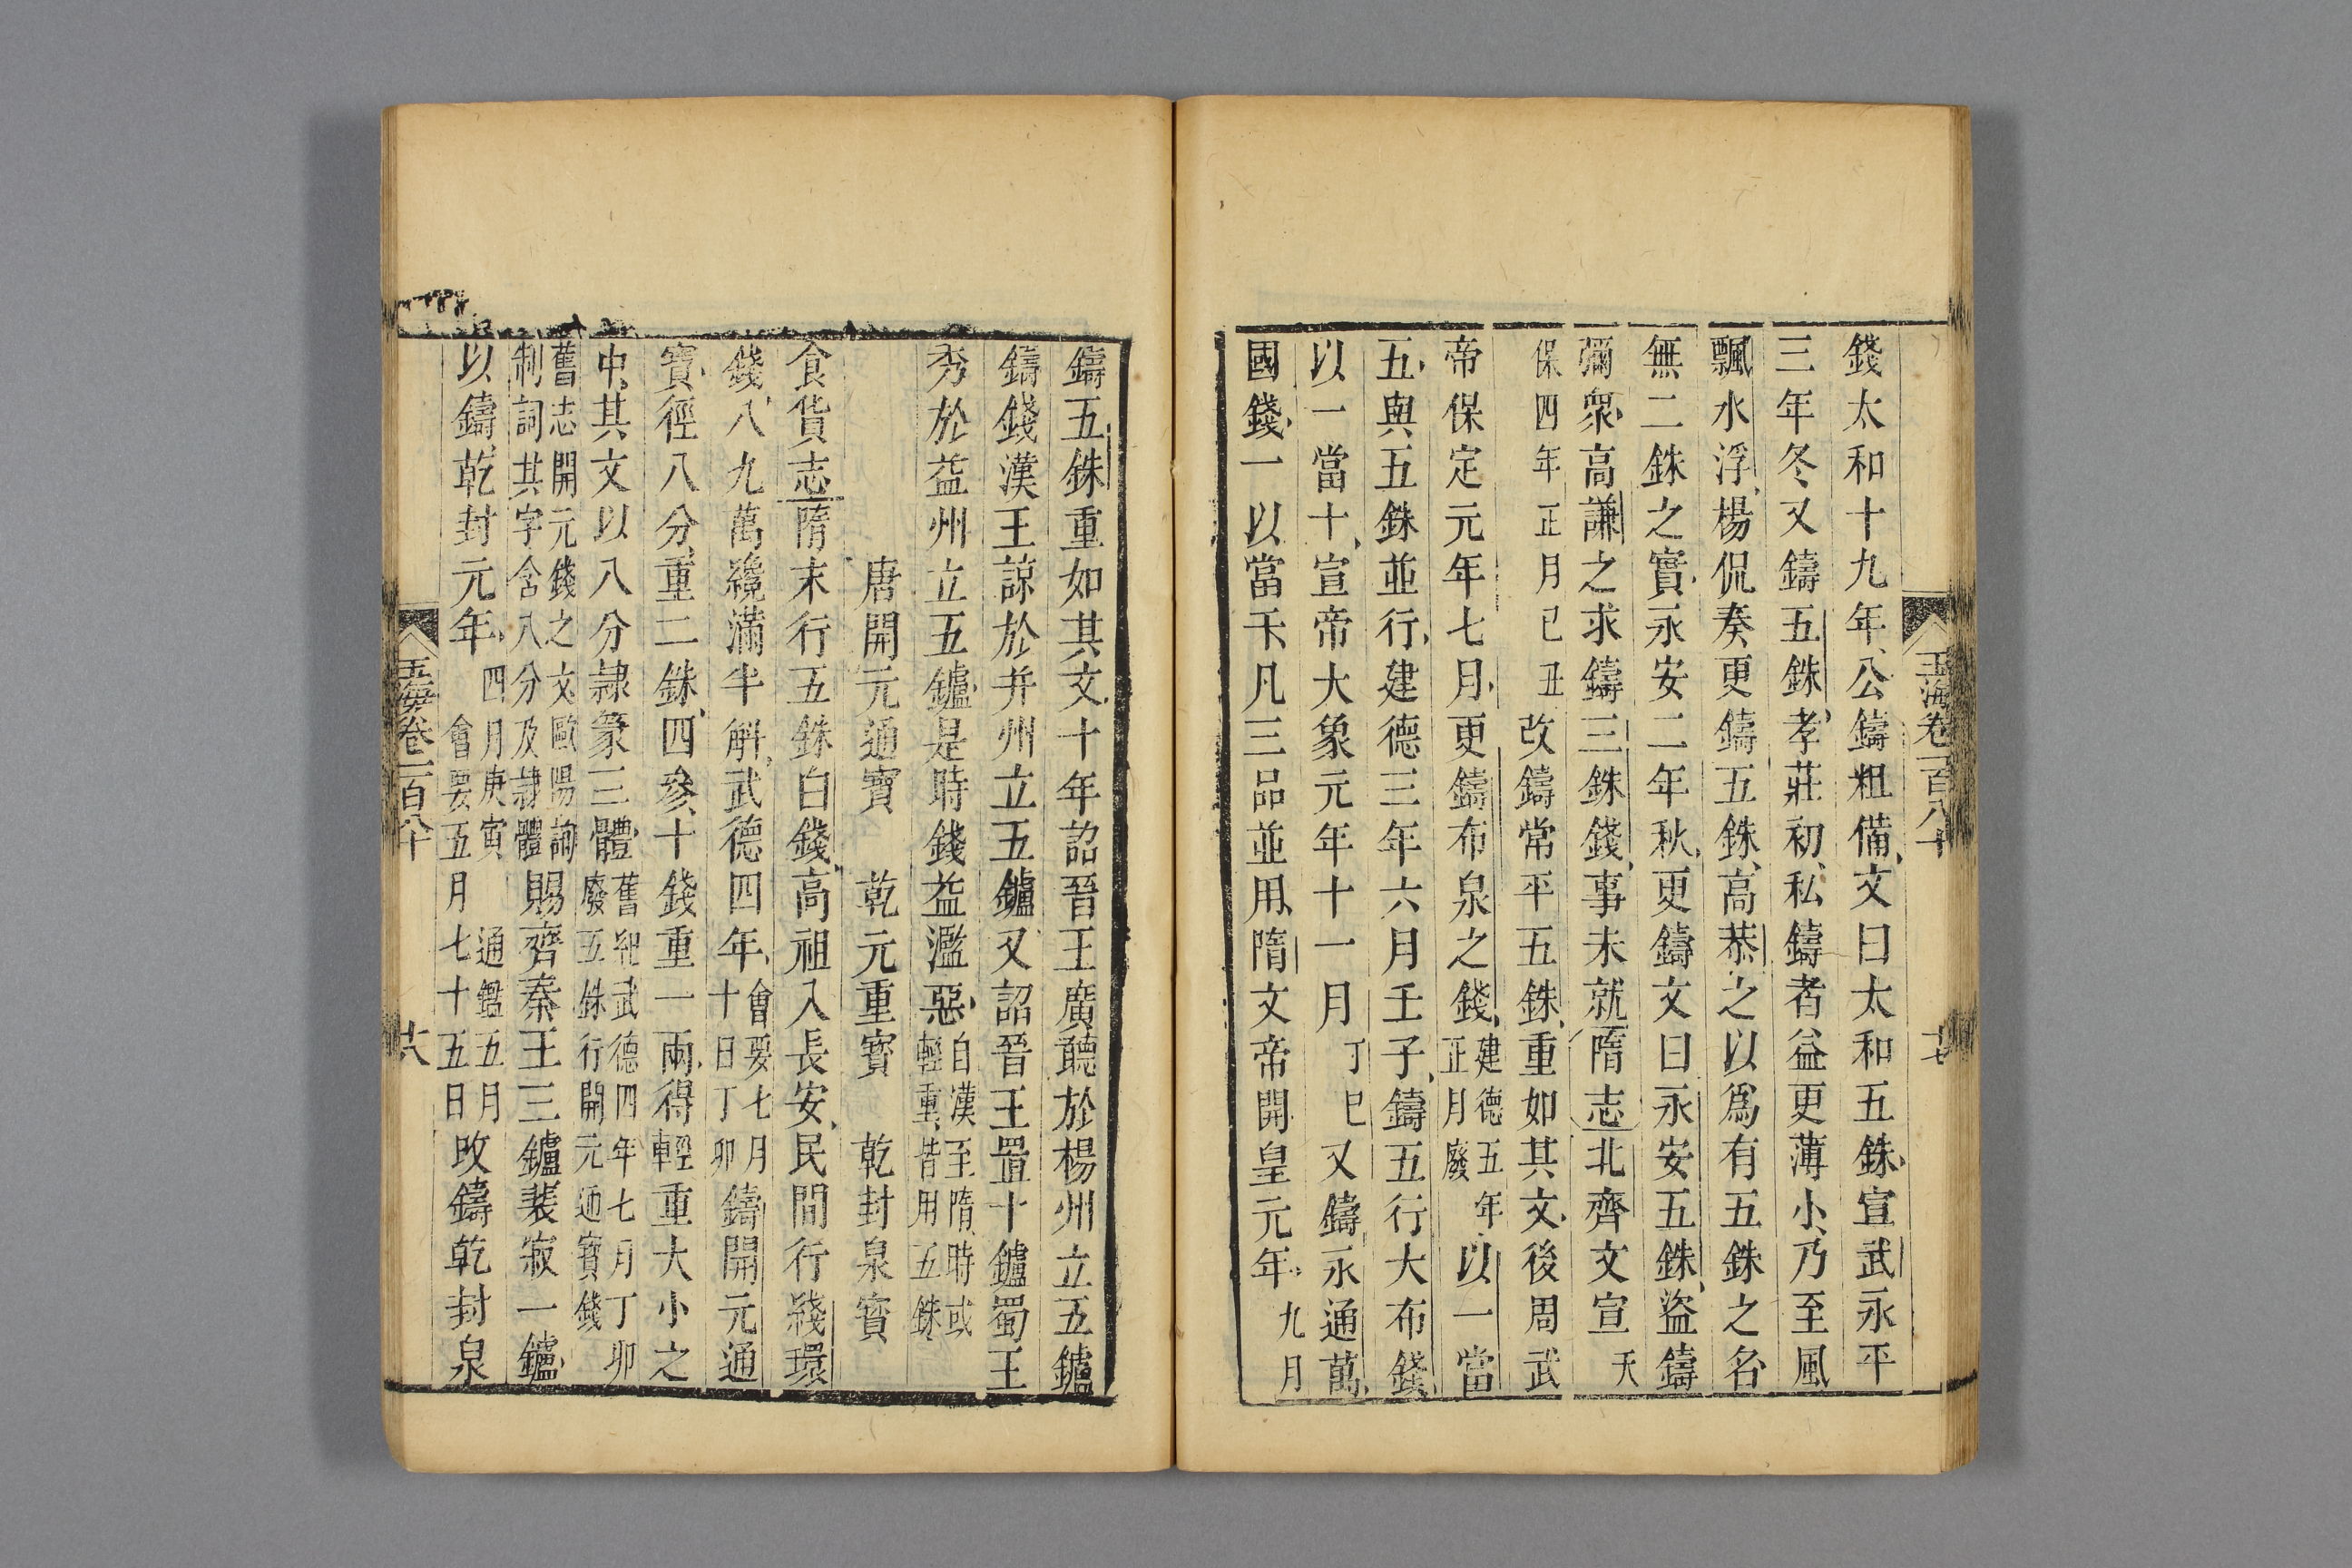 玉海卷一百八十
十七
錢太和十九年公鑄粗備文曰太和五銖宣武永平
三年冬又鑄五銖孝莊初私鑄者益更薄小乃至風
飄水浮楊侃奏更鑄五銖高恭之以爲有五銖之名
無二銖之實永安二年秋更鑄文曰永安五銖盜鑄
彌衆高謙之求鑄三銖錢事未就隋志北齊文宣天
保四年正月己丑改鑄常平五銖重如其文後周武
帝保定元年七月更鑄布泉之錢建德五年正月廢以一當
五與五銖並行建德三年六月壬子鑄五行大布錢
以一當十宣帝大象元年十一月丁巳又鑄永通萬
國錢一以當千凡三品並用隋文帝開皇元年九月
鑄五銖重如其文十年詔晉王廣聽於楊州立五鑪
鑄錢漢王諒於并州立五鑪又詔晉王置十鑪蜀王
秀於益州立五鑪是時錢益濫惡自漢至隋時或輕重皆用五銖
唐開元通寶 乾元重寶 乾封泉寶
食貨志隋末行五銖白錢高祖入長安民間行綫環
錢八九萬纔滿半斛武德四年會要七月十日丁卯鑄開元通
寶徑八分重二銖四參十錢重一兩得輕重大小之
中其文以八分隷篆三體舊紀武德四年七月丁卯廢五銖行開元通寶錢
舊志開元錢之文歐陽詢制詞其字含八分及隷體賜齊秦王三鑪裴寂一鑪
以鑄乾封元年四月庚寅通鑑五月會要五月七十五日改鑄乾封泉
玉海卷一百八十
十八